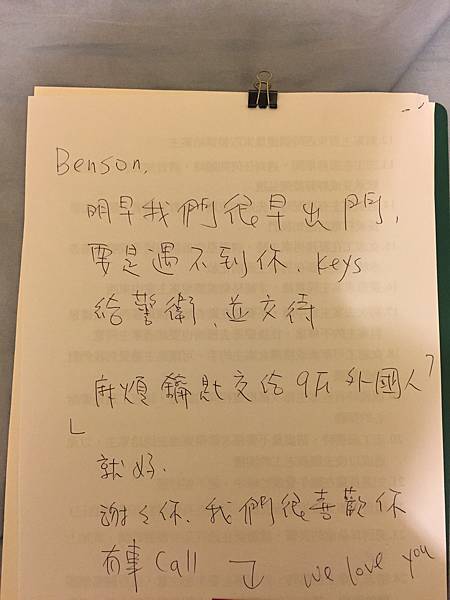 Benson,
明早我們很早出門,
要是遇不到你, keys
給警衛,並交待
「麻煩鑰匙交給9F外國人」
就好.
謝々你.我們很喜歡你
有事Call ↓ we love you